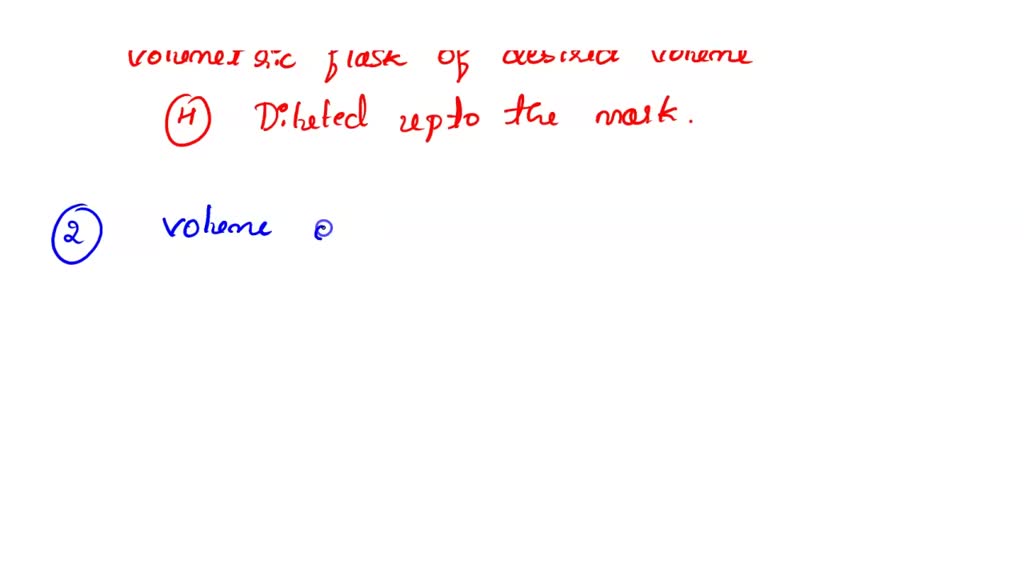 volumetric flask of desired volume
④ Diluted upto the mark.
② volume